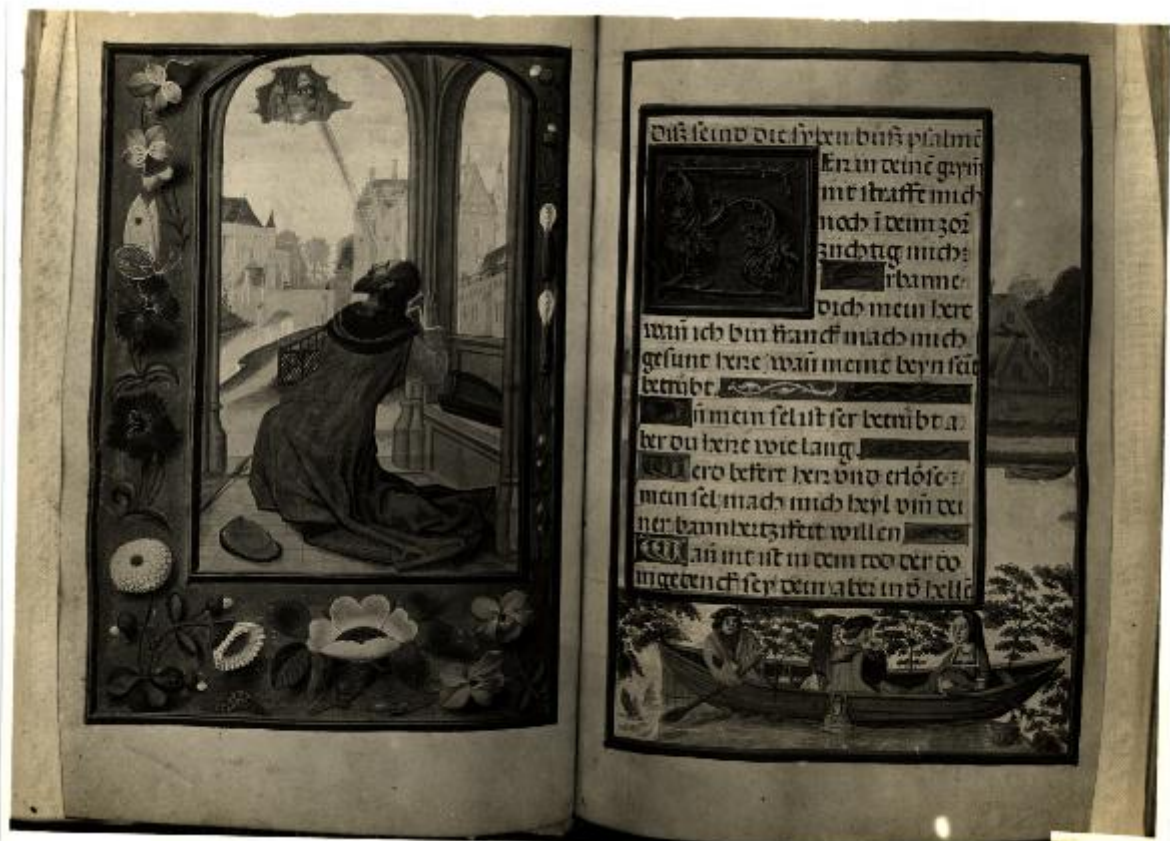 Diß seind die syben buß psalmē
HErr in deinē grym̄
nit straffe mich
noch ī deim zorn
züchtig mich:
Erbarme
dich mein here
wañ ich bin kranck mach mich
gesunt herre, wañ meine beyn seīt
betrübt.
Uñ mein sel ist ser betrübt a
ber du herre wie lang.
Werd bekert herr vnd erlöse
mein sel, mach mich heyl vm̄ dei
ner barmhertzikeit willen
Wañ nit ist in dem tod der do
ingedenck sey dein, aber in d̄ helle